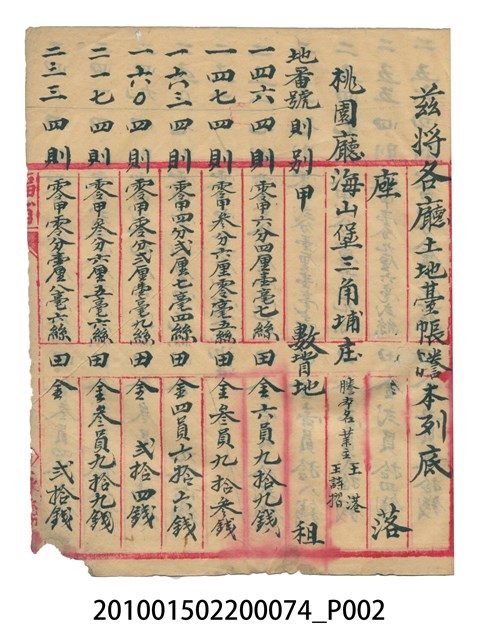 茲將各廳土地臺帳謄本列底
座落
桃園廳海山堡三角埔庄
謄本名業主王港
王詩摺
地番號則別甲數皆地租
一四六四則零甲六分四厘壹毫七絲田金六員九拾九錢
一四七四則零甲叁分六厘零毫五絲田金叁員九拾叁錢
一六三四則零甲四分弍厘七毫四絲田金四員六拾六錢
一六〇四則零甲零分弍厘壹毫九絲田金弍拾四錢
二一七四則零甲叁分六厘五毫六絲田金叁員九拾九錢
二三三四則零甲零分壹厘八毫六絲田金弍拾錢
201001502200074_P002